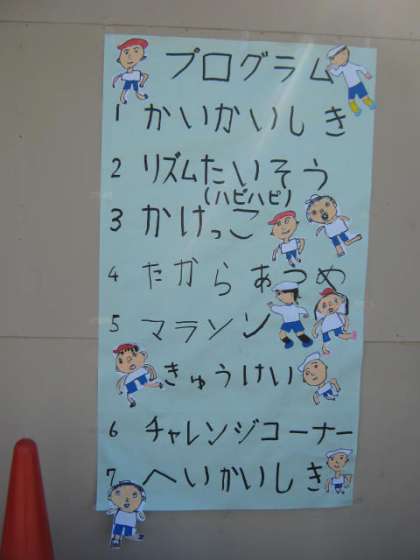 プログラム
1 かいかいしき
2 リズムたいそう
(ハピハピ)
3 かけっこ
4 たからあつめ
5 マラソン
きゅうけい
6 チャレンジコーナー
7 へいかいしき